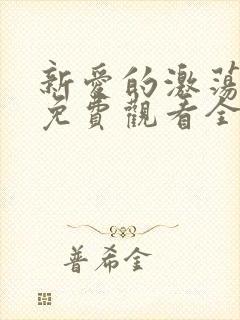 新愛的激蕩
免費觀看全
普希金